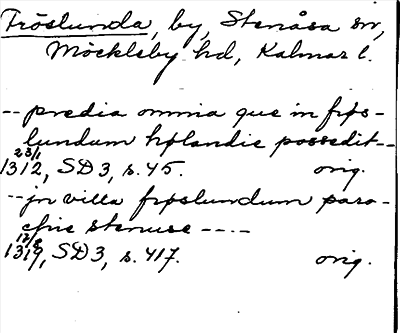 Fröslunda, by, Stenåsa sn,
Möckleby hd, Kalmar l.
-- predia omnia que in frøs-
lundum hølandie possedit--
23/1 1312, SD 3, s. 45. orig.
-- jn villa frøslundum paro-
chie stenuse ----
12/8 1319, SD 3, s. 417. orig.